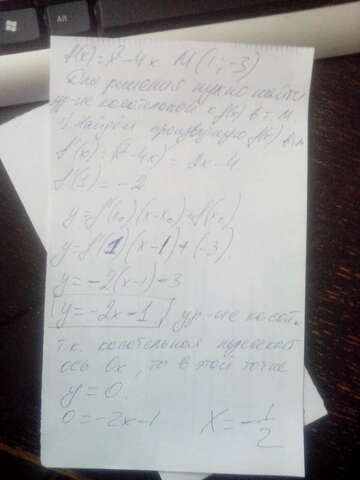 f(x)=x²-4x M(1;-3)
Для решения нужно найти
ур-ие касательной к f(x) в т. M
1) Найдём производную f(x)
f'(x)=(x²-4x)'=2x-4
f'(1)=-2
y=f'(x₀)(x-x₀)+f(x₀)
y=f'(1)(x-1)+(-3)
y=-2(x-1)-3
y=-2x-1 ур-ие касат.
т.к. касательная пересекает
ось Ox, то в этой точке
y=0
0=-2x-1 X=-1/2